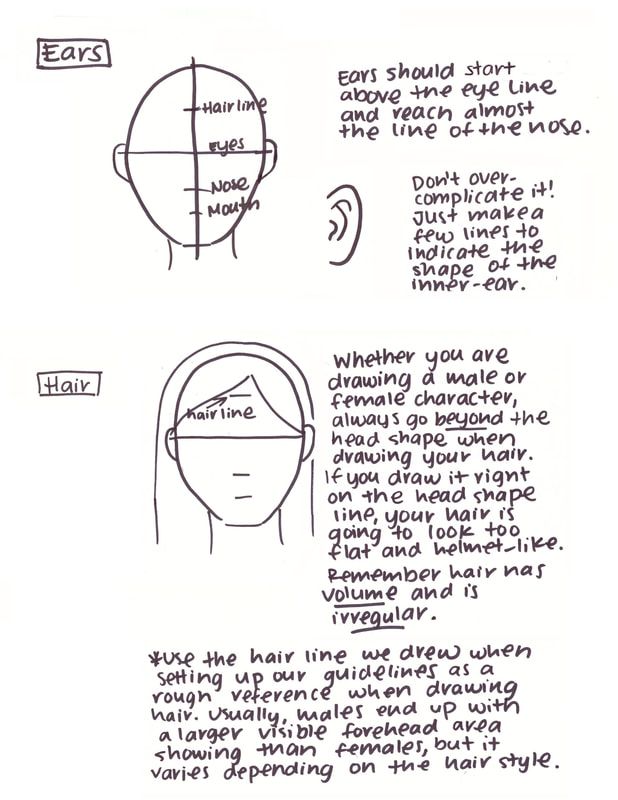 Ears
Hairline
Eyes
Nose
Mouth
Ears should start
above the eye line
and reach almost
the line of the nose.
Don't over-
complicate it!
Just make a
few lines to
indicate the
shape of the
inner-ear.
Hair
hairline
Whether you are
drawing a male or
female character,
always go beyond the
head shape when
drawing your hair.
If you draw it right
on the head shape
line, your hair is
going to look too
flat and helmet-like.
Remember hair has
volume and is
irregular.
*Use the hair line we drew when
setting up our guidelines as a
rough reference when drawing
hair. Usually, males end up with
a larger visible forehead area
showing than females, but it
varies depending on the hair style.